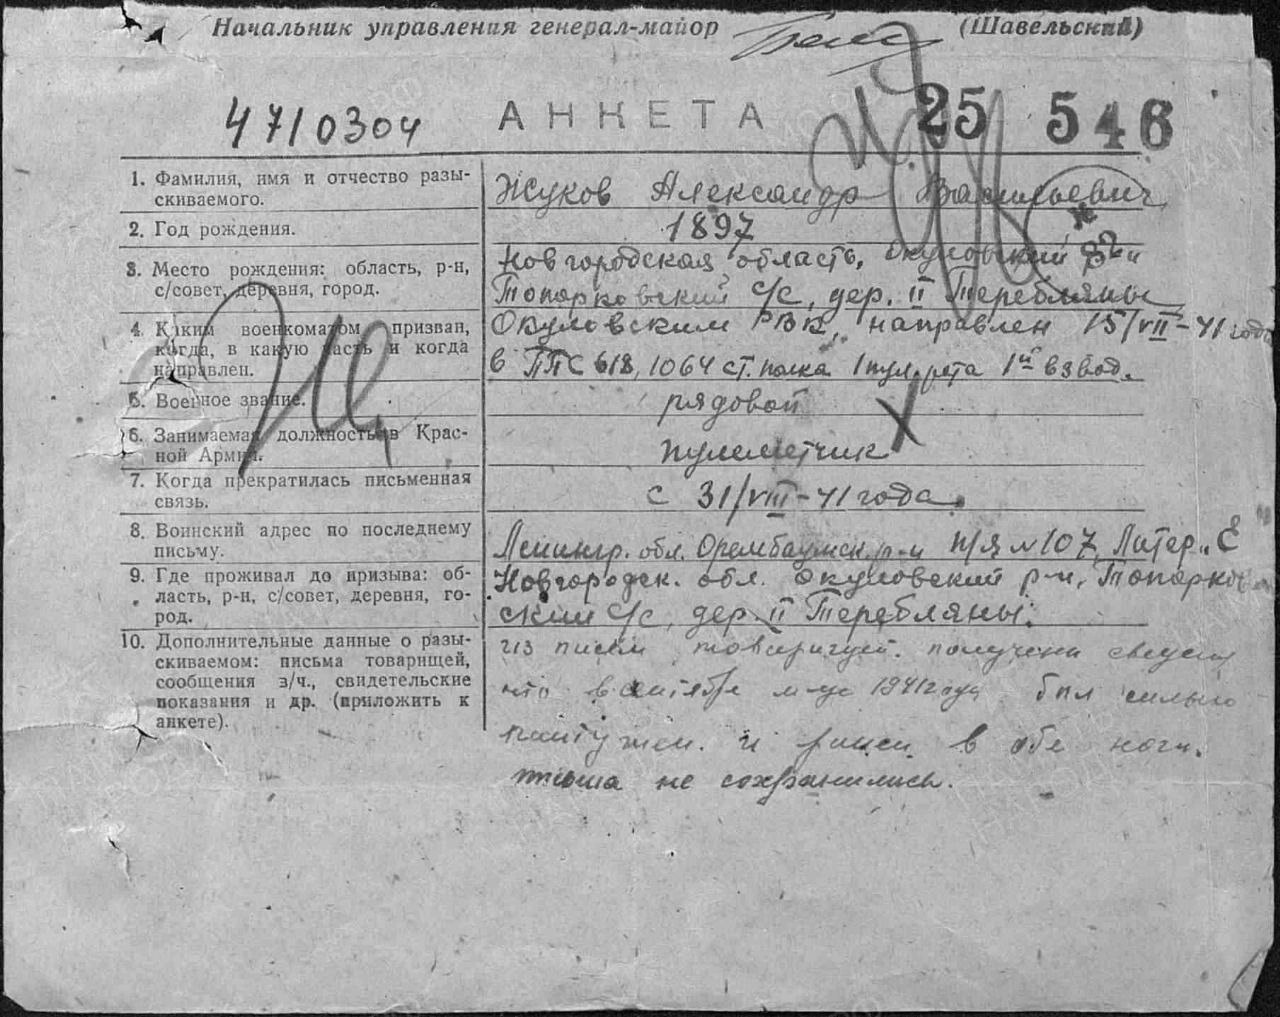 Начальник управления генерал-майор (Шавельский)
47/0304 АНКЕТА 25 546
1. Фамилия, имя и отчество разы-
скиваемого.
Жуков Александр Васильевич
2. Год рождения.
1897
3. Место рождения: область, р-н,
с/совет, деревня, город.
Новгородская область, Окуловский р-н
Топорковский с/с, дер. II Теребляны
4. Каким военкоматом призван,
когда, в какую часть и когда
направлен.
Окуловским РВК, направлен 15/VII-41 года
в ППС 618, 1064 ст. полка 1 пул. рота 1й взвод.
5. Военное звание.
рядовой
6. Занимаемая должность в Крас-
ной Армии.
пулеметчик
7. Когда прекратилась письменная
связь.
с 31/VIII-41 года.
8. Воинский адрес по последнему
письму.
Ленингр. обл. Орембаумск. р-н п/я №107, Литер „Е"
9. Где проживал до призыва: об-
ласть, р-н, с/совет, деревня, го-
род.
Новгородск. обл. Окуловский р-н, Топорков
ский с/с, дер. II Теребляны.
10. Дополнительные данные о разы-
скиваемом: письма товарищей,
сообщения з/ч., свидетельские
показания и др. (приложить к
анкете).
из писем товарищей получены
что в сентябре м-це 1941 года был сильно
контужен и ранен в обе ноги.
письма не сохранились.